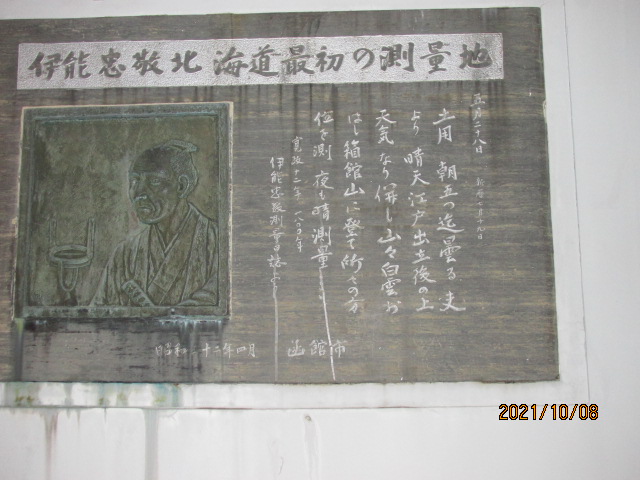 伊能忠敬北海道最初の測量地
五月二十八日
土用 朝五つ迄曇る 夫
より晴天江戸出立後の上
天気なり併し山々白雲お
ほし箱館山に登て所々の方
位を測 夜も晴測量
寛政十二年 一八〇〇年
伊能忠敬測量日誌より
昭和三十二年四月 函館市
2021/10/08